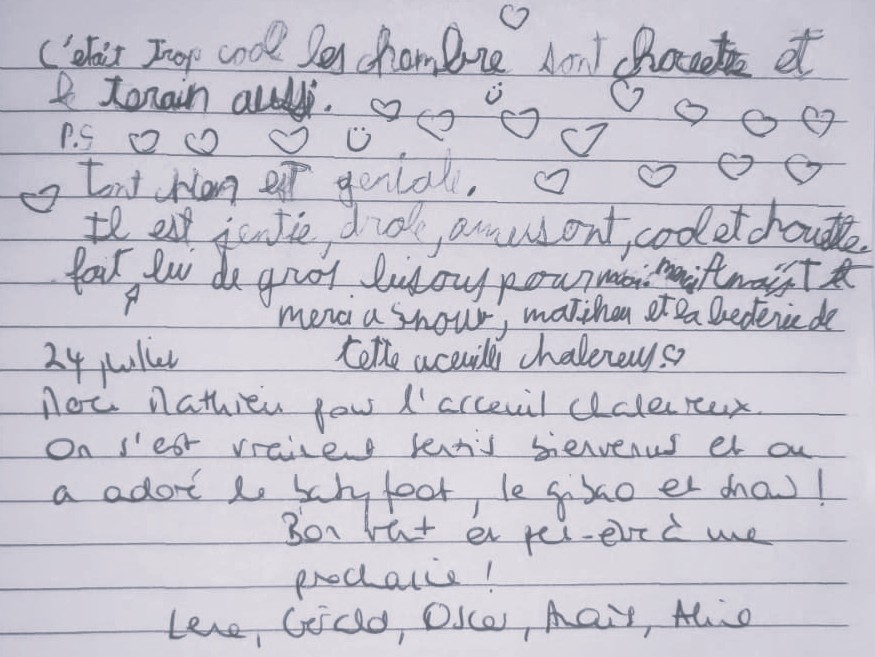 C'était trop cool les chambre sont chouette et
le terain aussi.
P.S
tont chien est genial.
Il est jentie, drole, amusont, cool et chouette.
fait lui de gros bisous pour moi. Anaïs et
merci a snow, mathieu et la de
cette aceuille chalereus.
24 juillet
Merci Mathieu pour l'acceuil chaleureux.
On s'est vraiment sentis bienvenus et on
a adoré le baby foot, le et snow !
Bon vent et peut-être à une
prochaine !
Lena, Gérald, Oscar, Anaïs, Aline